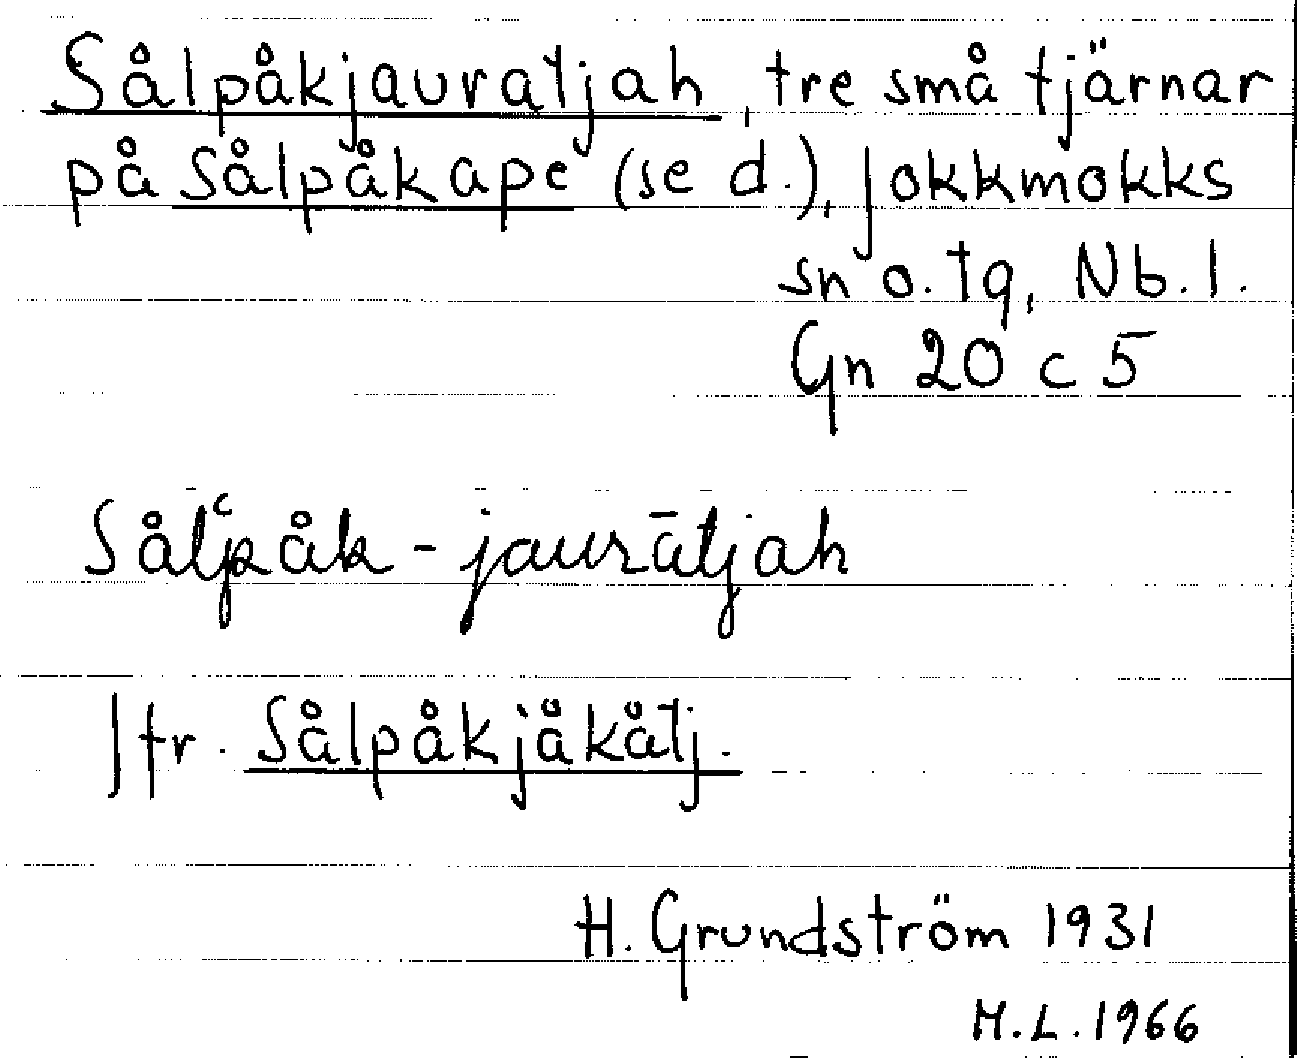 Sålpåkjauratjah, tre små tjärnar
på Sålpåkape (se d.), Jokkmokks
sn o. tg, Nb. l.
Gn 20 c 5
Sål̔påk-jaurātjah
Jfr. Sålpåkjåkåtj.
H. Grundström 1931
H.L. 1966